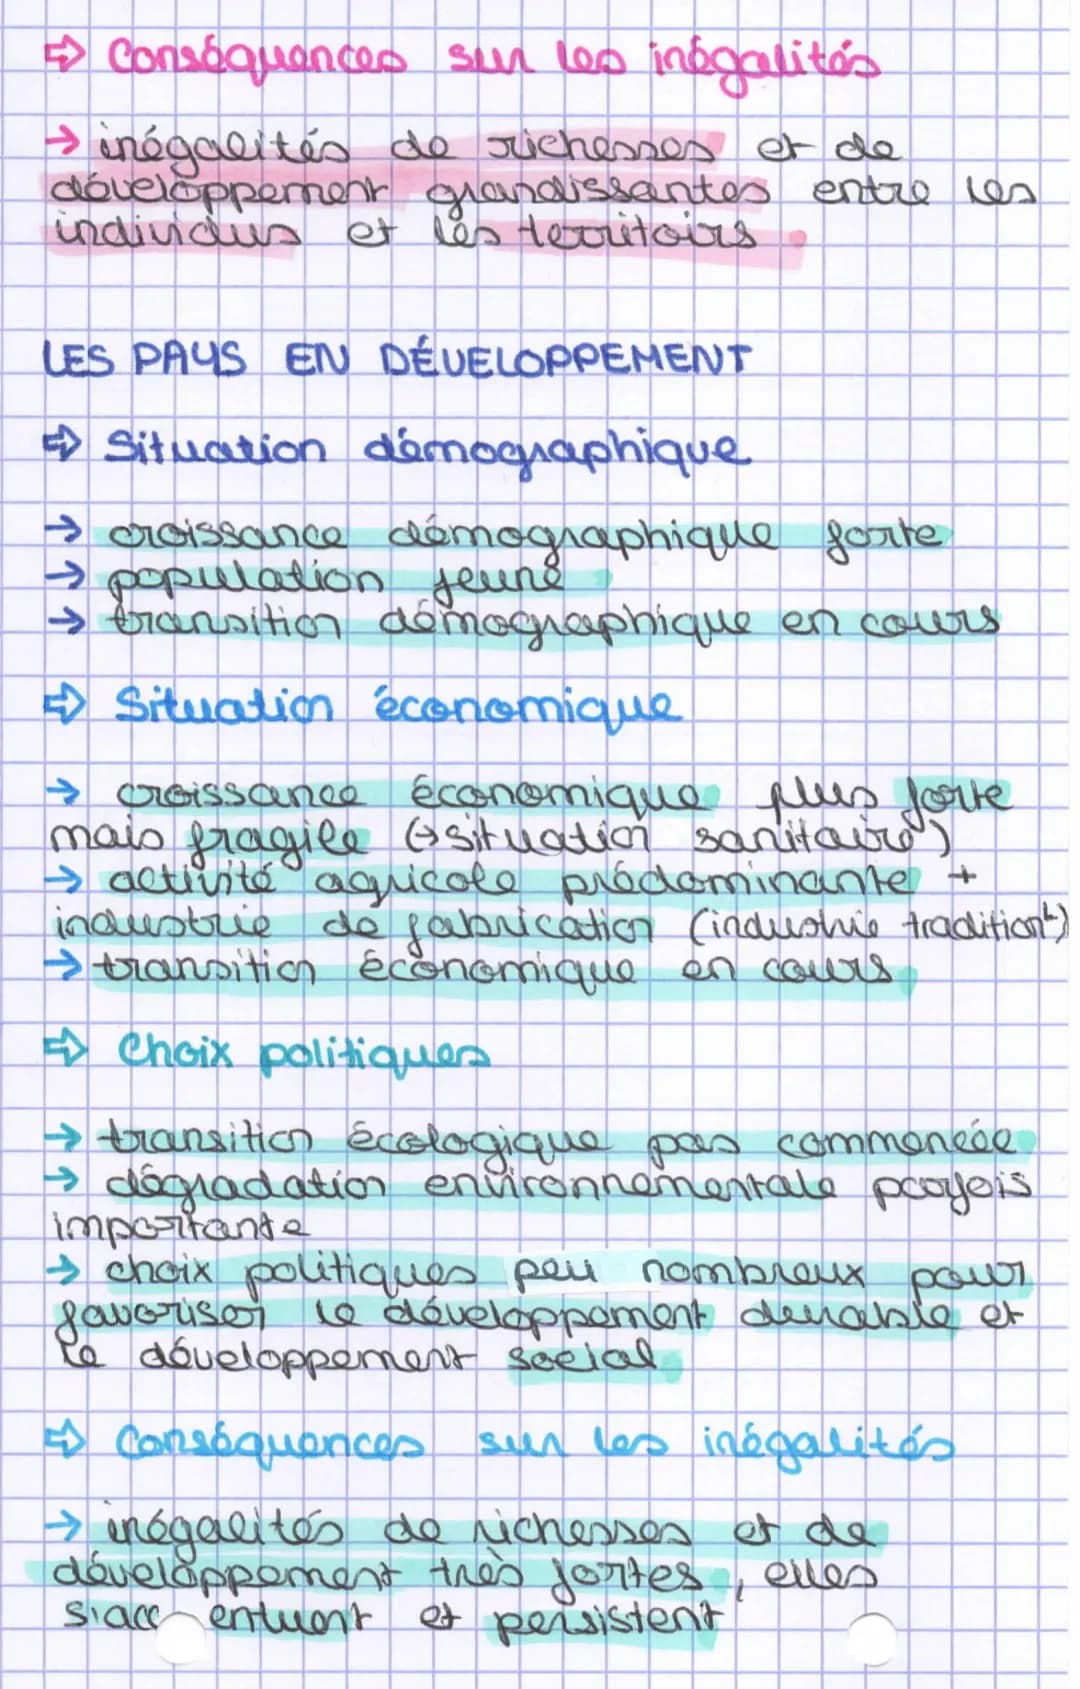 ⇨ Conséquences sur les inégalités
→ inégalités de richesses et de
développement grandissantes entre les
individus et les territoirs
LES PAYS EN DÉVELOPPEMENT
⇨ Situation démographique
→ croissance démographique forte
→ population jeune
→ transition démographique en cours
⇨ Situation économique
→ croissance économique plus forte
mais fragile (↔situation sanitaire)
→ activité agricole prédominante +
industrie de fabrication (industrie tradition^L)
→ transition économique en cours
⇨ Choix politiques
→ transition écologique pas commencée
→ dégradation environnementale parfois
importante
→ choix politiques peu nombreux pour
favoriser le développement durable et
le développement social
⇨ Conséquences sur les inégalités
→ inégalités de richesses et de
développement très fortes, elles
s'accentuent et persistent